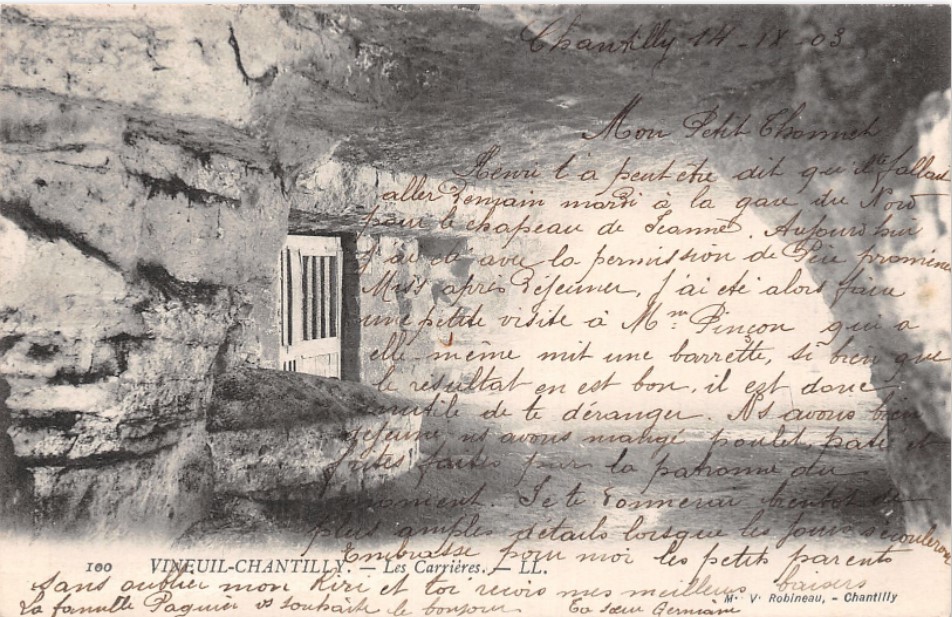 Chantilly 14 - IX - 03
Mon Petit
Henri t'a peut être dit qu'il te fallait
aller demain mardi à la gare du Nord
pour le chapeau de Jeanne. Aujourd'hui
j'ai été avec la permission de Père promener
Miss après déjeuner, j'ai été alors faire
une petite visite à Mme Pinçon qui a
elle même mit une barrette, si bien que
le resultat en est bon, il est donc
inutile de te déranger. Ns avons bien
déjeuné, ns avons mangé poulet, paté et
frites faites par la patronne du
moment. Je te donnerai bientôt de
plus amples détails lorsque les jours s'écouleront
Embrasse pour moi les petits parents
100 VINEUIL-CHANTILLY. — Les Carrières. — LL.
sans oublier mon Kiri et toi reçois mes meilleurs baisers
Mn Vve Robineau, - Chantilly
La famille Paquier vs souhaite le bonjour Ta sœur Germaine